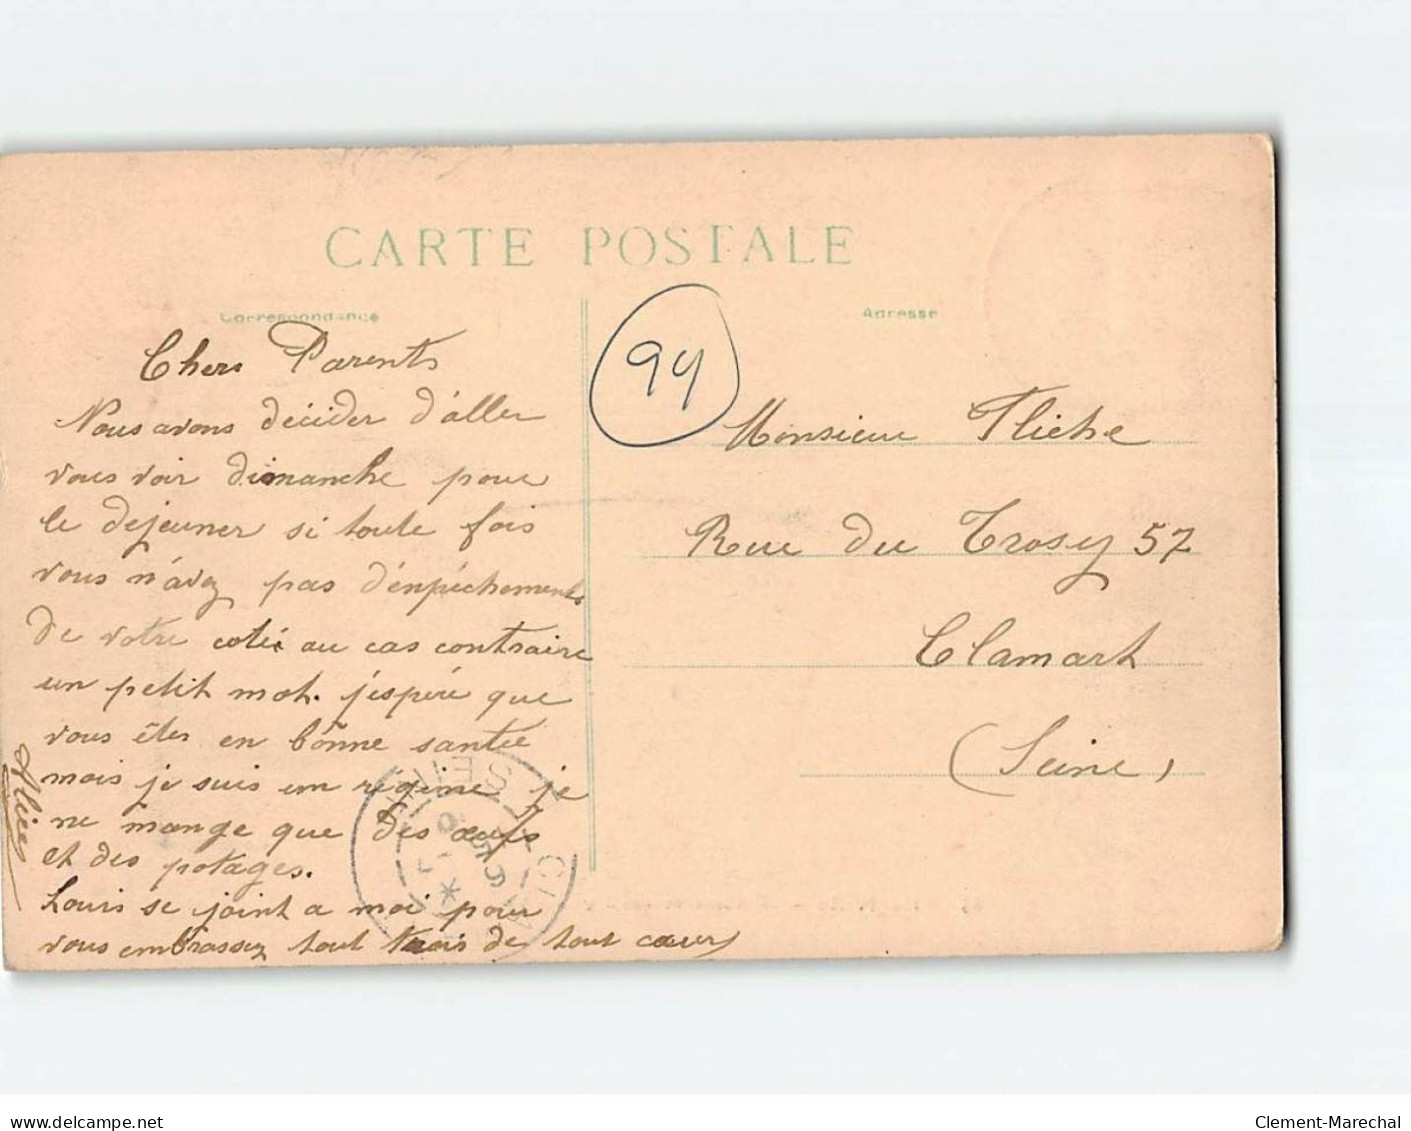 CARTE POSTALE
Correspondance
Adresse
94
Chers Parents
Nous avons décider d'aller
vous voir dimanche pour
le dejeuner si toute fois
vous n'avez pas d'énpéchements
de votre cotéé au cas contraire
un petit mot. j'espére que
vous êtes en bonne santée
mais je suis un régime je
ne mange que des œufs
et des potages.
Louis se joint a moi pour
vous embrassez tout trois de tout cœur
Alice
Monsieur Fliche
Rue du Trosy 57
Clamart
(Seine)
CLA SEINE
delcampe.net
Clement-Marechal